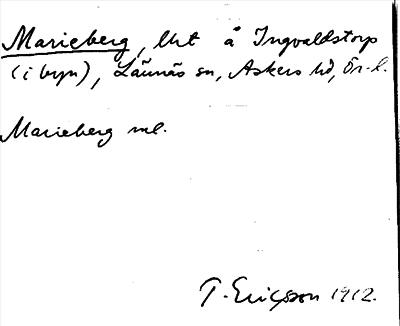 Marieberg, lht å Ingvaldstorp
(i byn), Lännäs sn, Askers hd, Ör. l.
Marieberg ml.
T. Ericsson 1912.